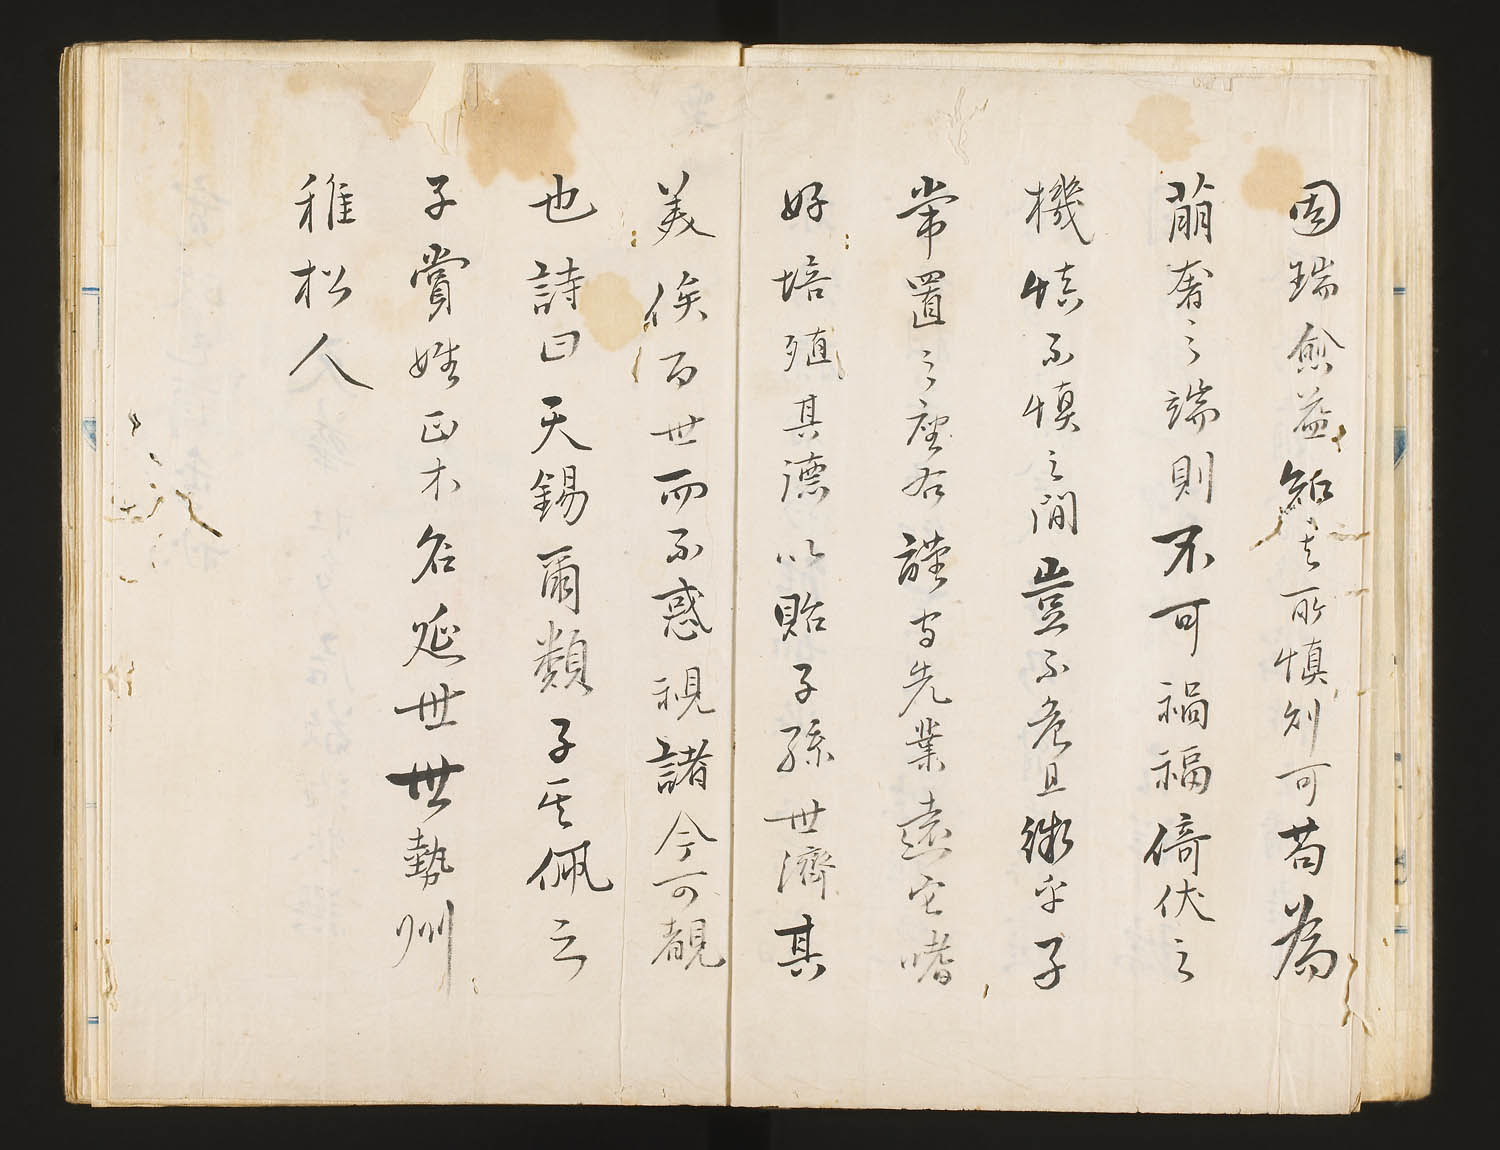 因瑞愈益知其所慎則可苟為
萠奢之端則不可禍福倚伏之
機慎不慎之間豈不危且微乎子
常置之座右謹守先業遠它嗜
好培殖其德以貽子孫世濟其
美俟百世而不惑視諸今可覩
也詩曰天錫爾類子其佩之
子賞姓正木名延世世勢州
稚松人